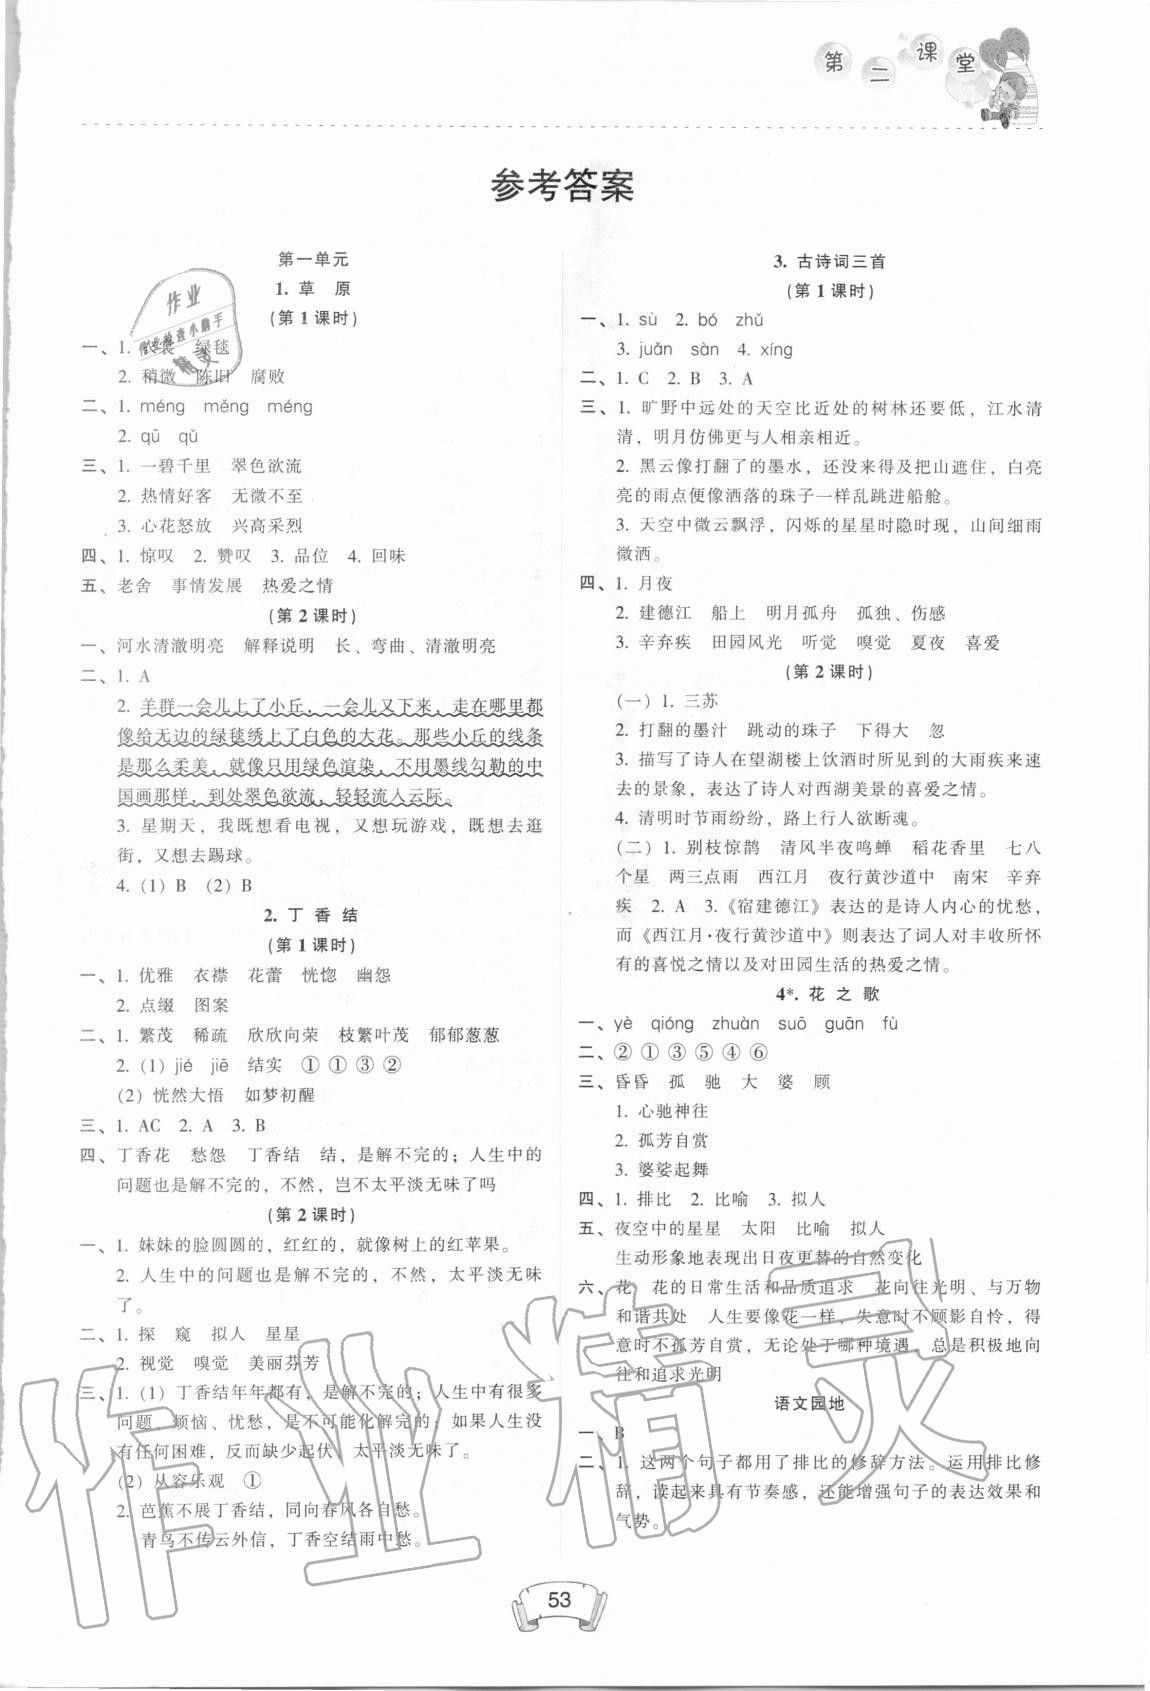 第二课堂
参考答案
第一单元
1. 草 原
(第1课时)
一、1. 裳 绿毯
2. 稍微 陈旧 腐败
二、1. méng měng méng
2. qū qǔ
三、1. 一碧千里 翠色欲流
2. 热情好客 无微不至
3. 心花怒放 兴高采烈
四、1. 惊叹 2. 赞叹 3. 品位 4. 回味
五、老舍 事情发展 热爱之情
(第2课时)
一、河水清澈明亮 解释说明 长、弯曲、清澈明亮
二、1. A
2. 羊群一会儿上了小丘，一会儿又下来，走在哪里都
像给无边的绿毯绣上了白色的大花。那些小丘的线条
是那么柔美，就像只用绿色渲染，不用墨线勾勒的中
国画那样，到处翠色欲流，轻轻流入云际。
3. 星期天，我既想看电视，又想玩游戏，既想去逛
街，又想去踢球。
4. (1) B (2) B
2. 丁 香 结
(第1课时)
一、1. 优雅 衣襟 花蕾 恍惚 幽怨
2. 点缀 图案
二、1. 繁茂 稀疏 欣欣向荣 枝繁叶茂 郁郁葱葱
2. (1) jié jiē 结实 ① ① ③ ②
(2) 恍然大悟 如梦初醒
三、1. AC 2. A 3. B
四、丁香花 愁怨 丁香结 结，是解不完的；人生中的
问题也是解不完的，不然，岂不太平淡无味了吗
(第2课时)
一、1. 妹妹的脸圆圆的，红红的，就像树上的红苹果。
2. 人生中的问题也是解不完的，不然，太平淡无味
了。
二、1. 探 窥 拟人 星星
2. 视觉 嗅觉 美丽芬芳
三、1. (1) 丁香结年年都有，是解不完的；人生中有很多
问题、烦恼、忧愁，是不可能化解完的；如果人生没
有任何困难，反而缺少起伏，太平淡无味了。
(2) 从容乐观 ①
2. 芭蕉不展丁香结，同向春风各自愁。
青鸟不传云外信，丁香空结雨中愁。
3. 古诗词三首
(第1课时)
一、1. sù 2. bó zhǔ
3. juǎn sàn 4. xíng
二、1. C 2. B 3. A
三、1. 旷野中远处的天空比近处的树林还要低，江水清
清，明月仿佛更与人相亲相近。
2. 黑云像打翻了的墨水，还没来得及把山遮住，白亮
亮的雨点便像洒落的珠子一样乱跳进船舱。
3. 天空中微云飘浮，闪烁的星星时隐时现，山间细雨
微洒。
四、1. 月夜
2. 建德江 船上 明月孤舟 孤独、伤感
3. 辛弃疾 田园风光 听觉 嗅觉 夏夜 喜爱
(第2课时)
(一) 1. 三苏
2. 打翻的墨汁 跳动的珠子 下得大 忽
3. 描写了诗人在望湖楼上饮酒时所见到的大雨疾来速
去的景象，表达了诗人对西湖美景的喜爱之情。
4. 清明时节雨纷纷，路上行人欲断魂。
(二) 1. 别枝惊鹊 清风半夜鸣蝉 稻花香里 七八
个星 两三点雨 西江月 夜行黄沙道中 南宋 辛弃
疾 2. A 3.《宿建德江》表达的是诗人内心的忧愁，
而《西江月·夜行黄沙道中》则表达了词人对丰收所怀
有的喜悦之情以及对田园生活的热爱之情。
4*. 花 之 歌
一、yè qióng zhuàn suō guān fù
二、② ① ③ ⑤ ④ ⑥
三、昏昏 孤 驰 大 婆 顾
1. 心驰神往
2. 孤芳自赏
3. 婆娑起舞
四、1. 排比 2. 比喻 3. 拟人
五、夜空中的星星 太阳 比喻 拟人
生动形象地表现出日夜更替的自然变化
六、花 花的日常生活和品质追求 花向往光明、与万物
和谐共处 人生要像花一样，失意时不顾影自怜，得
意时不孤芳自赏，无论处于哪种境遇，总是积极地向
往和追求光明
语文园地
一、B
二、1. 这两个句子都用了排比的修辞方法。运用排比修
辞，读起来具有节奏感，还能增强句子的表达效果和
气势。
53
作业
作业检查小助手
精灵
作业精灵